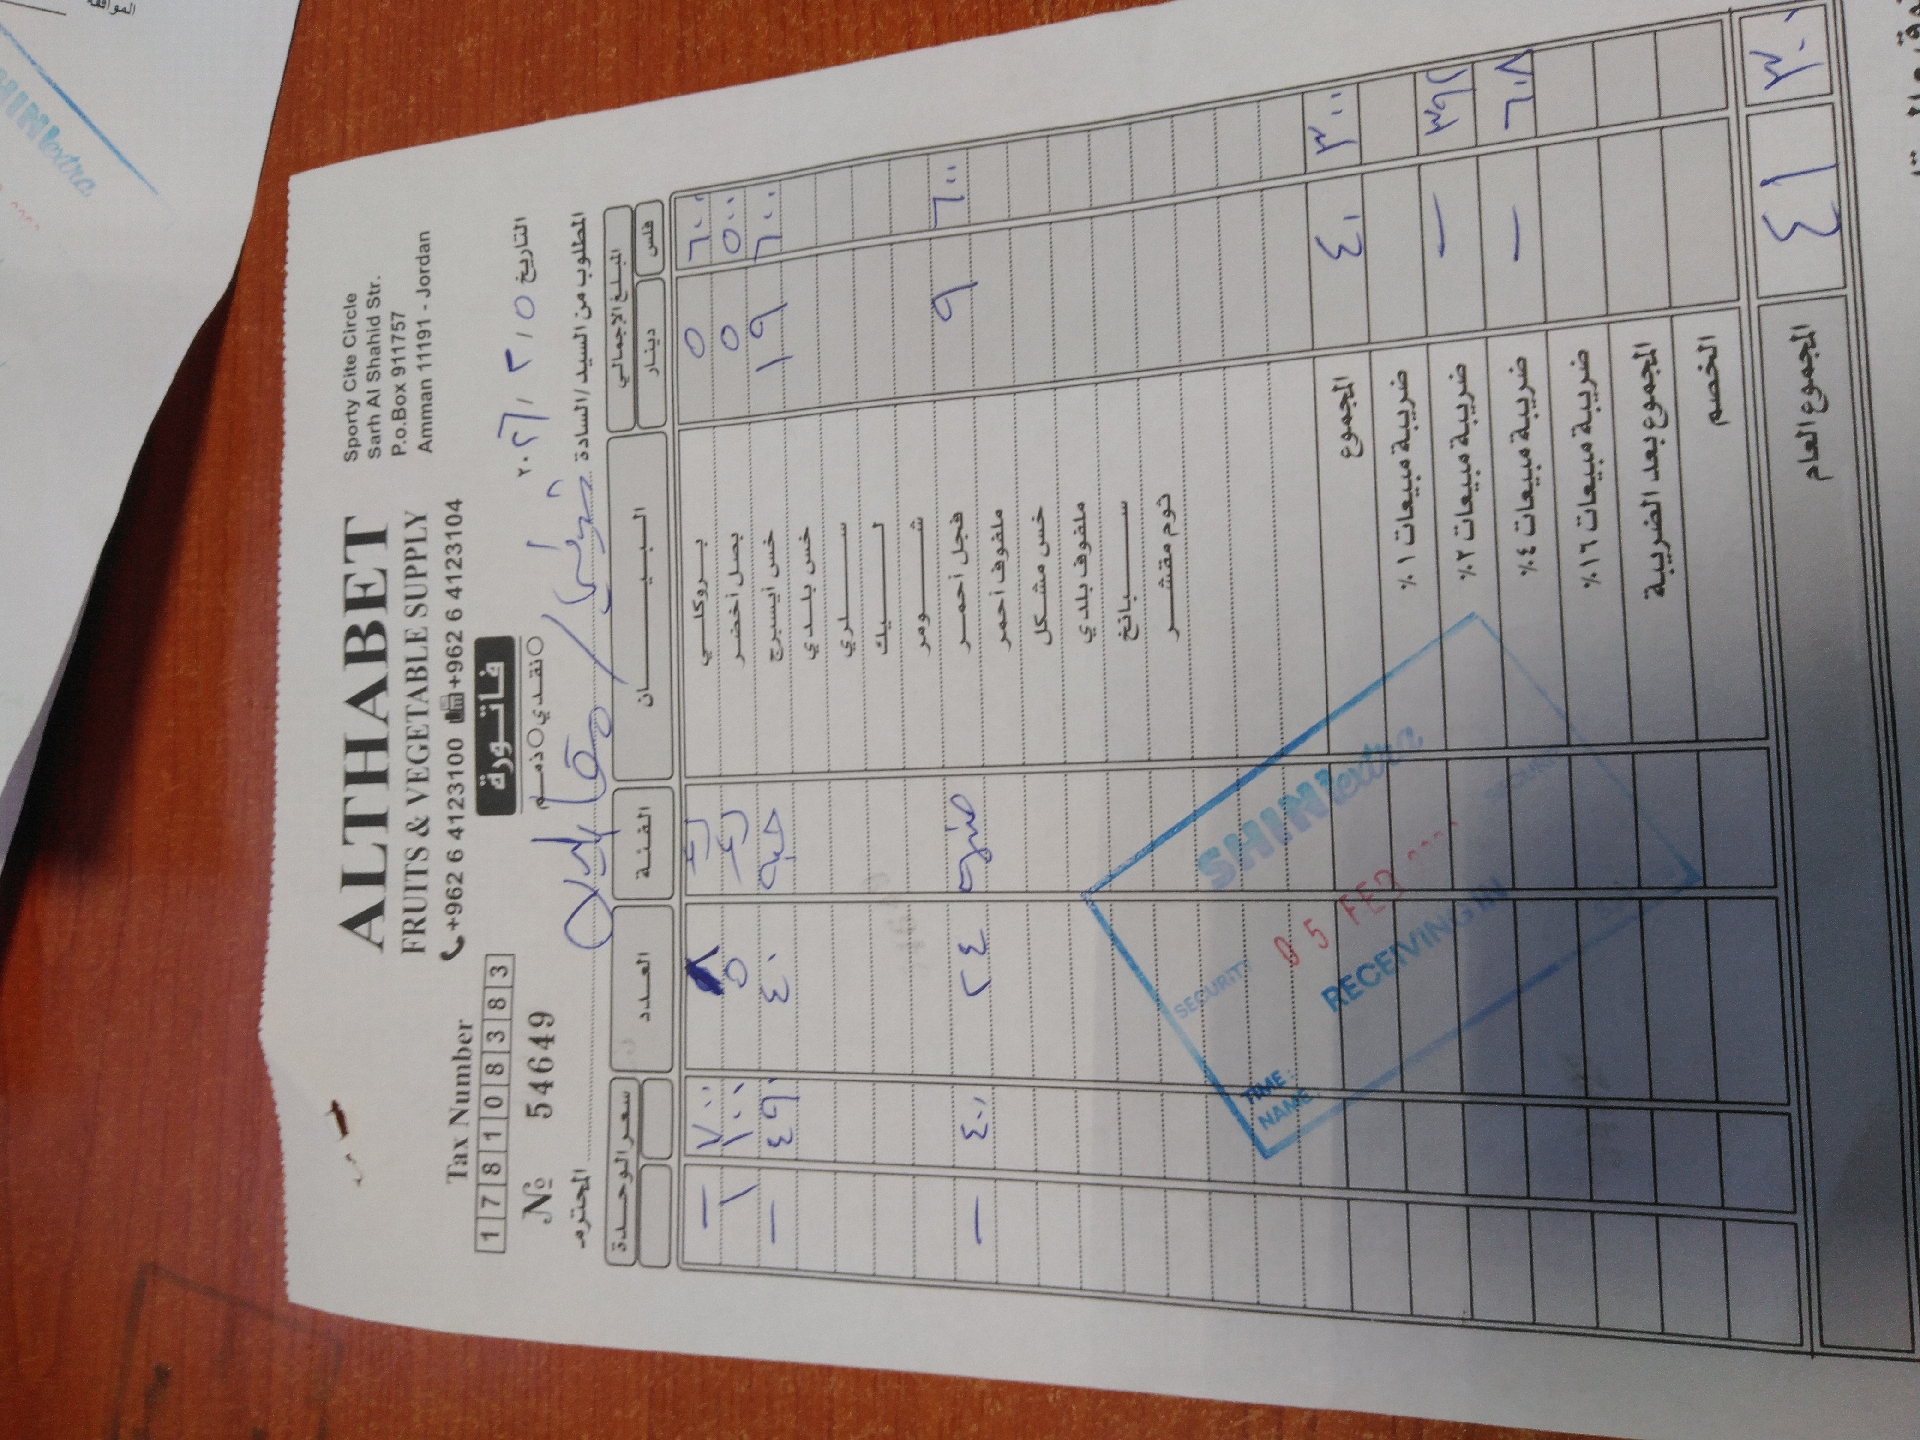 ALTHABET
FRUITS & VEGETABLE SUPPLY
+962 6 4123100 +962 6 4123104
Sporty Cite Circle
Sarh Al Shahid Str.
P.o.Box 911757
Amman 11191 - Jordan
Tax Number
1 7 8 1 0 8 3 8 3
№ 54649
فاتورة
نقدي ذمم
التاريخ ٥ / ٢ / ٢٠٢٦
المطلوب من السيد/السادة
المحترم
المبلغ الاجمالي البيان الفئة العدد سعر الوحدة
دينار فلس
بروكلي ٥ ٦٠٠ ٨ — ٧٠٠
بصل أخضر ٥ ٥٠٠ ٥ ١ ١٠٠
خس أيسبرج ١٩ ٦٠٠ حبه ٤٠ — ٤٩٠
خس بلدي
سلري
ليك
شومر
فجل أحمر ٩ ٦٠٠ ٢٤ — ٤٠٠
ملفوف أحمر
خس مشكل
ملفوف بلدي
سبانخ
ثوم مقشر
المجموع ٤٠ ٣٠٠
ضريبة مبيعات ١ %
ضريبة مبيعات ٢ % — ٣٩٢
ضريبة مبيعات ٤ % — ٦٠٨
ضريبة مبيعات ١٦ %
المجموع بعد الضريبة
الخصم
المجموع العام ٤١ ٣٠٠
SHINIextra
SECURITY
05 FEB
RECEIVING IN
TIME:
NAME: